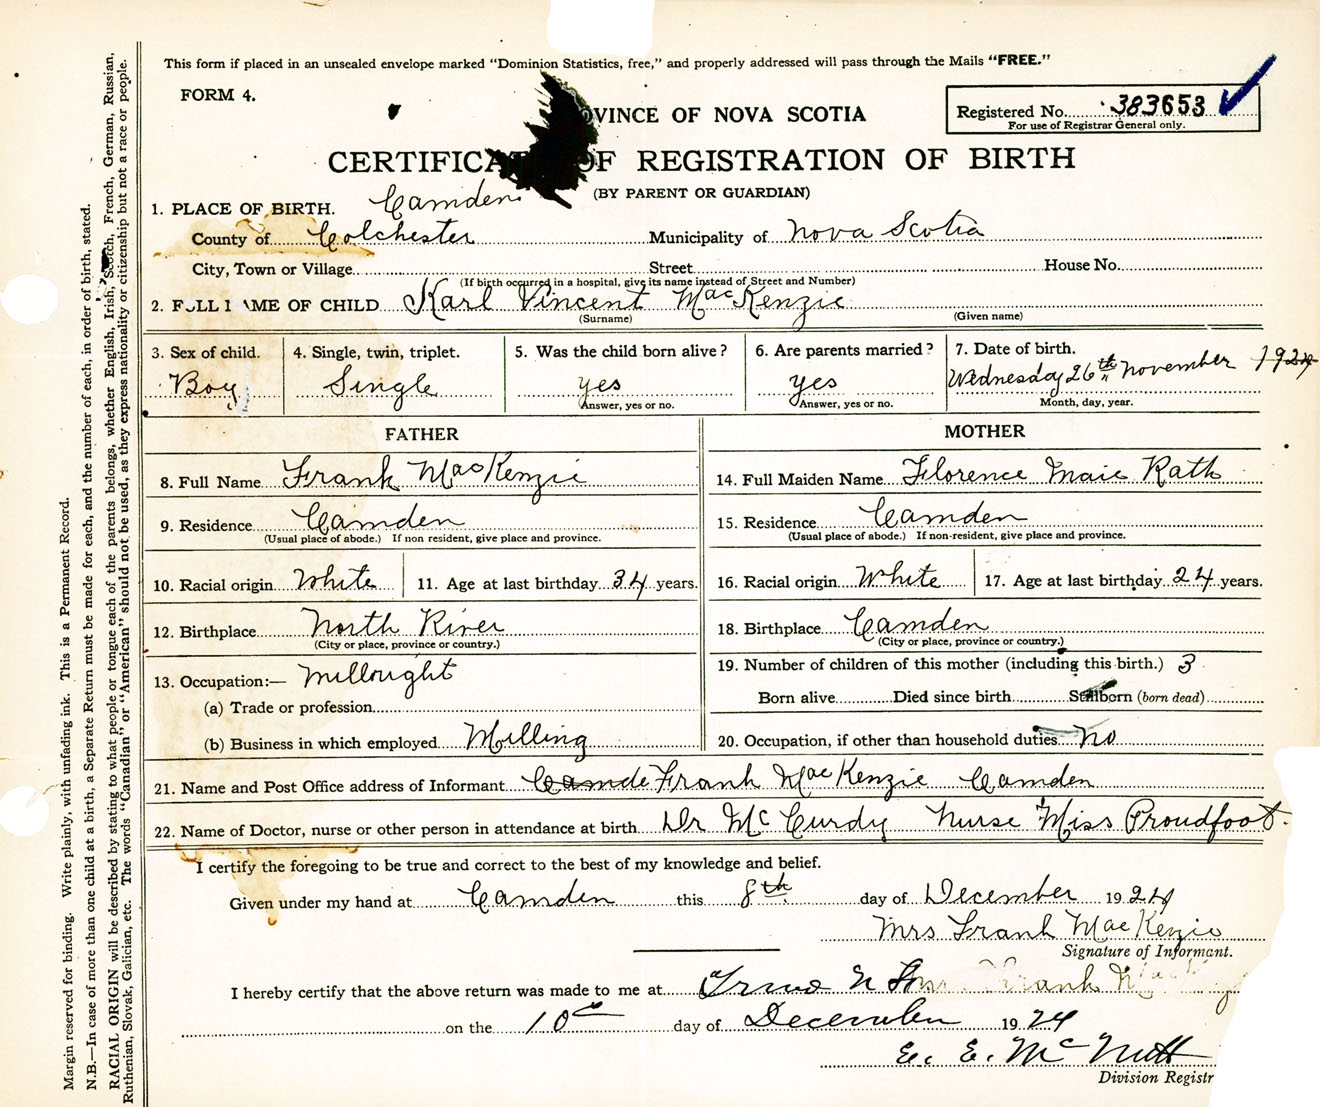 This form if placed in an unsealed envelope marked "Dominion Statistics, free," and properly addressed will pass through the Mails "FREE."
FORM 4.
OVINCE OF NOVA SCOTIA
Registered No. 383653
For use of Registrar General only.
CERTIFICA OF REGISTRATION OF BIRTH
(BY PARENT OR GUARDIAN)
1. PLACE OF BIRTH. Camden
County of Colchester Municipality of Nova Scotia
City, Town or Village Street House No.
(If birth occurred in a hospital, give its name instead of Street and Number)
2. FULL NAME OF CHILD Karl Vincent MacKenzie
(Surname) (Given name)
3. Sex of child. 4. Single, twin, triplet. 5. Was the child born alive? 6. Are parents married? 7. Date of birth.
Boy Single yes yes Wednesday 26th November 1924
Answer, yes or no. Answer, yes or no. Month, day, year.
FATHER MOTHER
8. Full Name Frank MacKenzie 14. Full Maiden Name Florence Maie Rath
9. Residence Camden 15. Residence Camden
(Usual place of abode.) If non resident, give place and province. (Usual place of abode.) If non-resident, give place and province.
10. Racial origin White 11. Age at last birthday 34 years. 16. Racial origin White 17. Age at last birthday 24 years.
12. Birthplace North River 18. Birthplace Camden
(City or place, province or country.) (City or place, province or country.)
13. Occupation:— Millright 19. Number of children of this mother (including this birth.) 3
(a) Trade or profession Born alive Died since birth Stillborn (born dead)
(b) Business in which employed Milling 20. Occupation, if other than household duties No
21. Name and Post Office address of Informant Camde Frank MacKenzie Camden
22. Name of Doctor, nurse or other person in attendance at birth Dr McCurdy Nurse Miss Proudfoot.
I certify the foregoing to be true and correct to the best of my knowledge and belief.
Given under my hand at Camden this 8th day of December 1924
Mrs Frank MacKenzie
Signature of Informant.
I hereby certify that the above return was made to me at Truro N S Frank
on the 10th day of December 1924
E. E. McNutt
Division Registr
Margin reserved for binding. Write plainly, with unfading ink. This is a Permanent Record.
N.B.—In case of more than one child at a birth, a Separate Return must be made for each, and the number of each, in order of birth, stated.
RACIAL ORIGIN will be described by stating to what people or tongue each of the parents belongs, whether English, Irish, Scotch, French, German, Russian,
Ruthenian, Slovak, Galician, etc. The words "Canadian" or "American" should not be used, as they express nationality or citizenship but not a race or people.